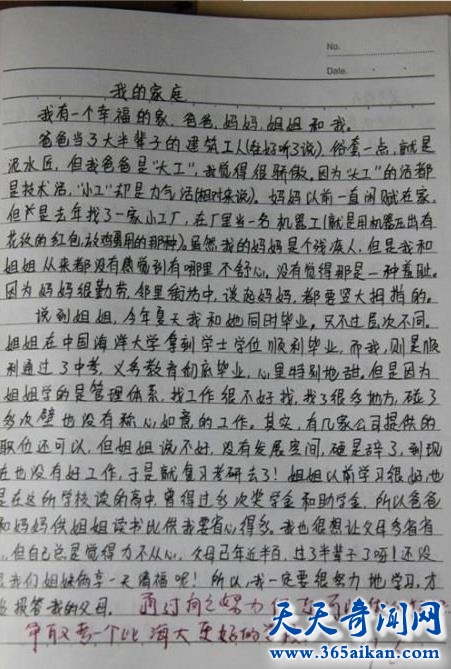 No.
Date.
我的家庭
我有一个幸福的家,爸爸,妈妈,姐姐和我。
爸爸当了大半辈子的建筑工人(在好听了说),俗套一点,就是
泥水匠,但我爸爸是“大工”,我觉得很骄傲,因为“大工”的活都
是技术活,“小工”却是力气活(相对来说)。妈妈以前一直闲赋在家,
但于是去年找了一家小工厂,在厂里当一名机器工(就是用机器压出有
花纹的红包,放鸡蛋用的那种)。虽然我的妈妈是个残疾人,但是我和
姐姐从来都没有感觉到有哪里不舒心,没有觉得那是一种羞耻。
因为妈妈很勤劳,邻里街坊中,谈起妈妈,都要竖大拇指的。
说到姐姐,今年夏天我和她同时毕业,只不过层次不同。
姐姐在中国海洋大学拿到学士学位顺利毕业,而我,则是顺
利通过了中考,义务教育彻底毕业,心里特别地甜。但是因为
姐姐学的是管理体系,找工作很不好找,找了很多地方,碰了
多次壁也没有称心如意的工作。其实,有几家公司提供的
职位还可以,但姐姐说不好,没有发展空间,硬是辞了,到现
在也没有好工作,于是就复习考研去了!姐姐以前学习很好,也
是在这所学校读的高中,曾得过多次奖学金和助学金,所以爸爸
和妈妈供姐姐读书比供我要省心得多。我也很想让父母多省省
,但自己总是觉得力不从心,父母已年近半百,过了半辈子了呀!还没
我们姐妹俩享一天清福呢!所以,我一定要很努力地学习,才
报答我的父母。通过自己努力
争取考一个比海大更好的
天天奇闻网
www.365aikan.com